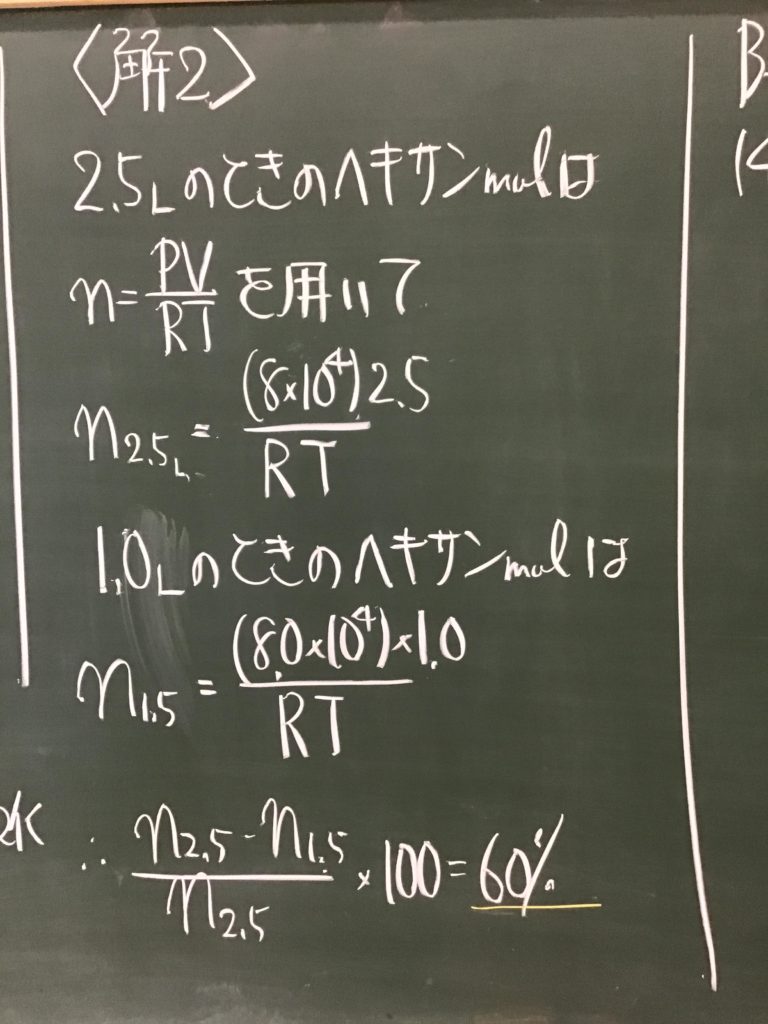 〈解2〉
2.5Lのときのヘキサンmolは
n=PV/RTを用いて
n2.5L=(8×10⁴)2.5/RT
1.0Lのときのヘキサンmolは
n1.5=(8.0×10⁴)×1.0/RT
∴ n2.5-n1.5/n2.5×100=60%
B